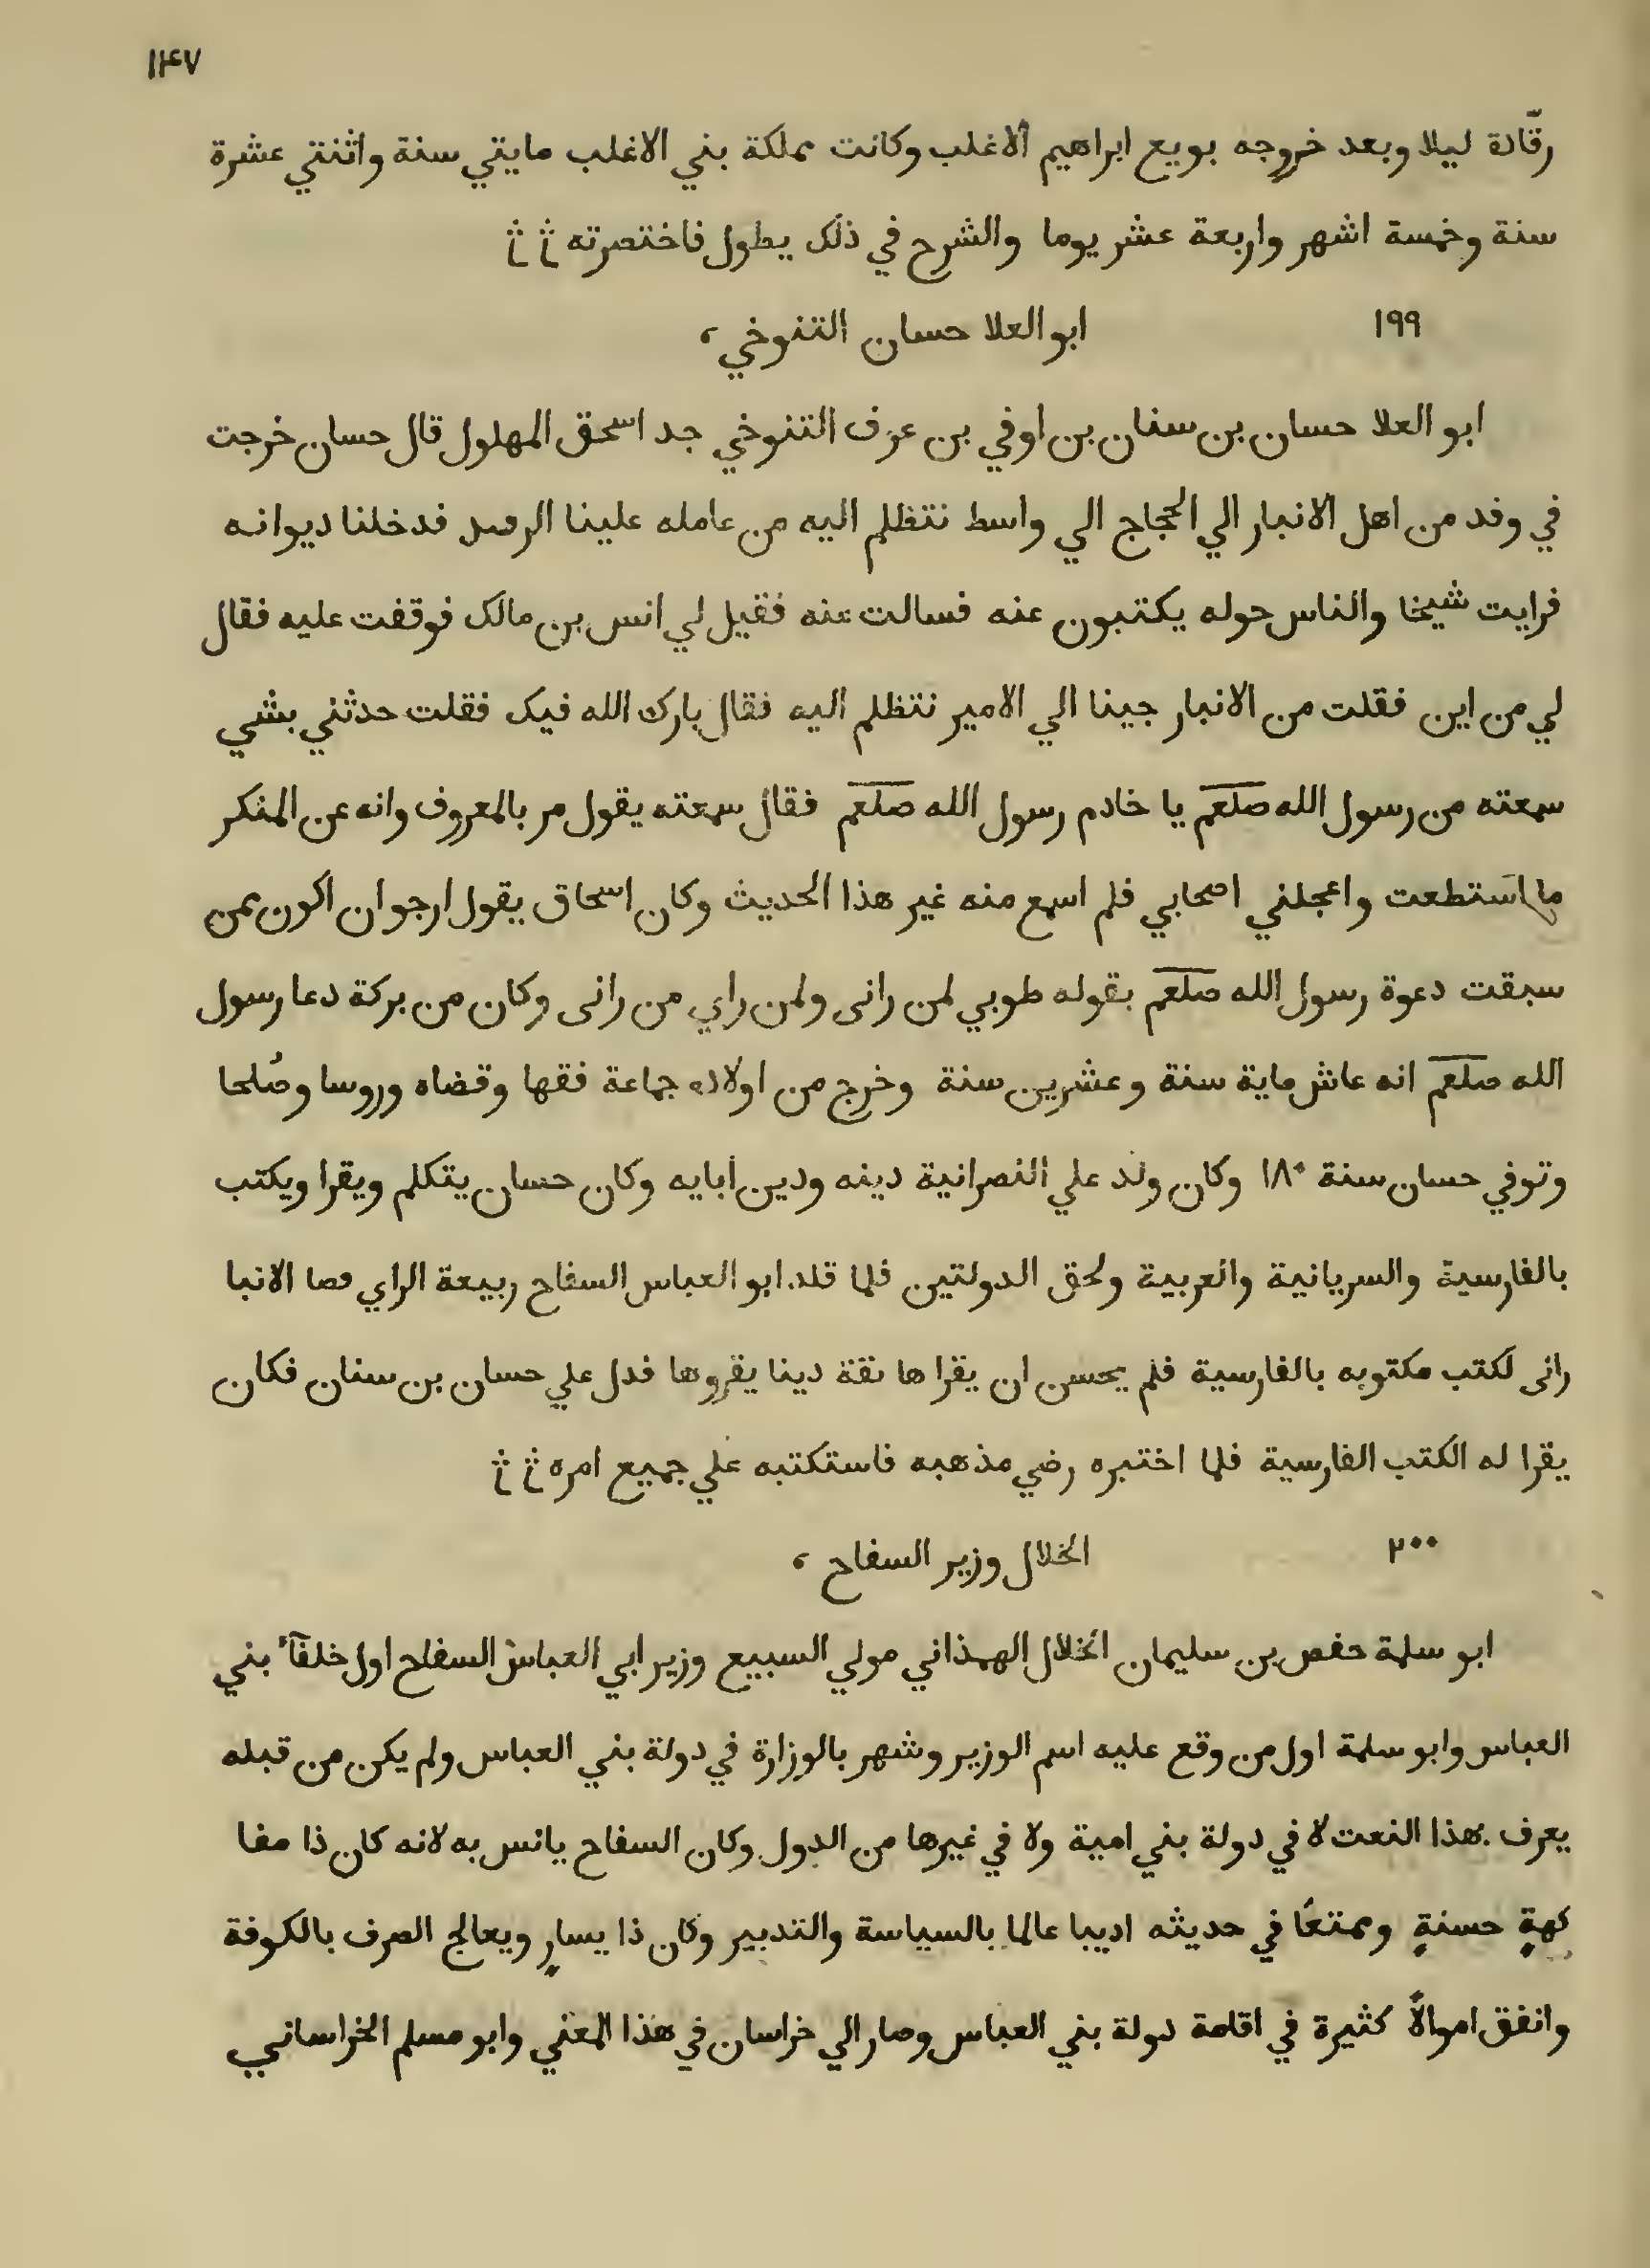 ١٤٧
رقّادة ليلا وبعد خروجه بويع ابراهيم الاغلب وكانت مملكة بني الاغلب مايتي سنة واثنتي عشرة
سنة وخمسة اشهر واربعة عشر يوما والشرح في ذلك يطول فاختصرته
١٩٩ ابو العلا حسان التنوخي،
ابو العلا حسان بن سنان بن اوفي بن عوف التنوخي جد اسحق المهلول قال حسان خرجت
في وفد من اهل الانبار الي الحجاج الي واسط نتظلم اليه من عامله علينا الرصد فدخلنا ديوانه
فرايت شيخا والناس حوله يكتبون عنه فسالت عنه فقيل لي انس بن مالك فوقفت عليه فقال
لي من اين فقلت من الانبار جينا الي الامير نتظلم اليه فقال بارك الله فيك فقلت حدثني بشي
سمعته من رسول الله صلعم يا خادم رسول الله صلعم فقال سمعته يقول مر بالمعروف وانه عن المنكر
ما استطعت واعجلني اصحابي فلم اسمع منه غير هذا الحديث وكان اسحاق يقول ارجو ان اكون ممن
سبقت دعوة رسول الله صلعم بقوله طوبي لمن رانى ولمن راي من رانى وكان من بركة دعا رسول
الله صلعم انه عاش ماية سنة وعشرين سنة وخرج من اولاده جماعة فقها وقضاه وروسا وصُلحا
وتوفي حسان سنة ١٨٠ وكان ولد علي النصرانية دينه ودين ابايه وكان حسان يتكلم ويقرا ويكتب
بالفارسية والسريانية والعربية ولحق الدولتين فلما قلد ابو العباس السفاح ربيعة الراي قصا الانبا
رانى لكتب مكتوبه بالفارسية فلم يحسن ان يقرا ها ثقة دينا يقروها فدل علي حسان بن سنان فكان
يقرا له الكتب الفارسية فلما اختبره رضي مذهبه فاستكتبه علي جميع امره
٢٠٠ الخلال وزير السفاح،
ابو سلمة حفص بن سليمان الخلال الهمذاني مولي السبيع وزير ابي العباس السفاح اول خلفآء بني
العباس وابو سلمة اول من وقع عليه اسم الوزير وشهر بالوزارة في دولة بني العباس ولم يكن من قبله
يعرف بهذا النعت لا في دولة بني امية ولا في غيرها من الدول وكان السفاح يانس به لانه كان ذا مفا
كهةٍ حسنةٍ وممتعًا في حديثه اديبا عالما بالسياسة والتدبير وكان ذا يسارٍ ويعالج الصرف بالكوفة
وانفق اموالاً كثيرة في اقامة دولة بني العباس وصار الي خراسان في هذا المعني وابو مسلم الخراساني